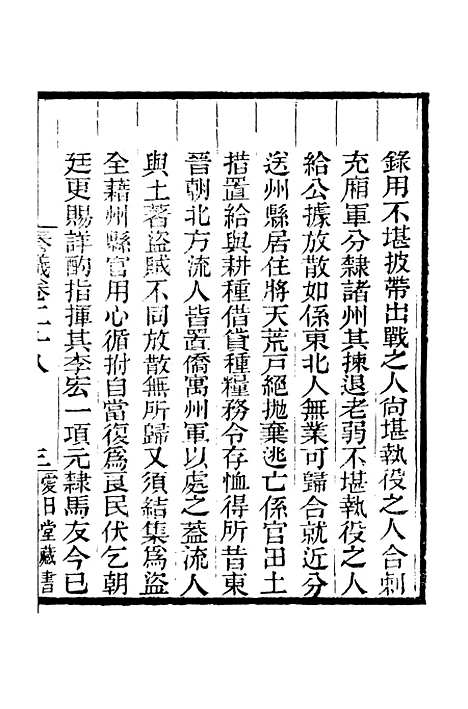 錄用不堪披帶出戰之人尙堪執役之人合刺
充廂軍分隸諸州其揀退老弱不堪執役之人
給公據放散如係東北人無業可歸合就近分
送州縣居住將天荒戸絕拋棄逃亡係官田土
措置給與耕種借貸種糧務令存恤得所昔東
晉朝北方流人皆置僑寓州軍以處之蓋流人
與土著盜賊不同放散無所歸又須結集爲盜
全藉州縣官用心循拊自當復爲良民伏乞朝
廷更賜詳酌指揮其李宏一項元隸馬友今已
奏議卷二十八 三 愛日堂藏書